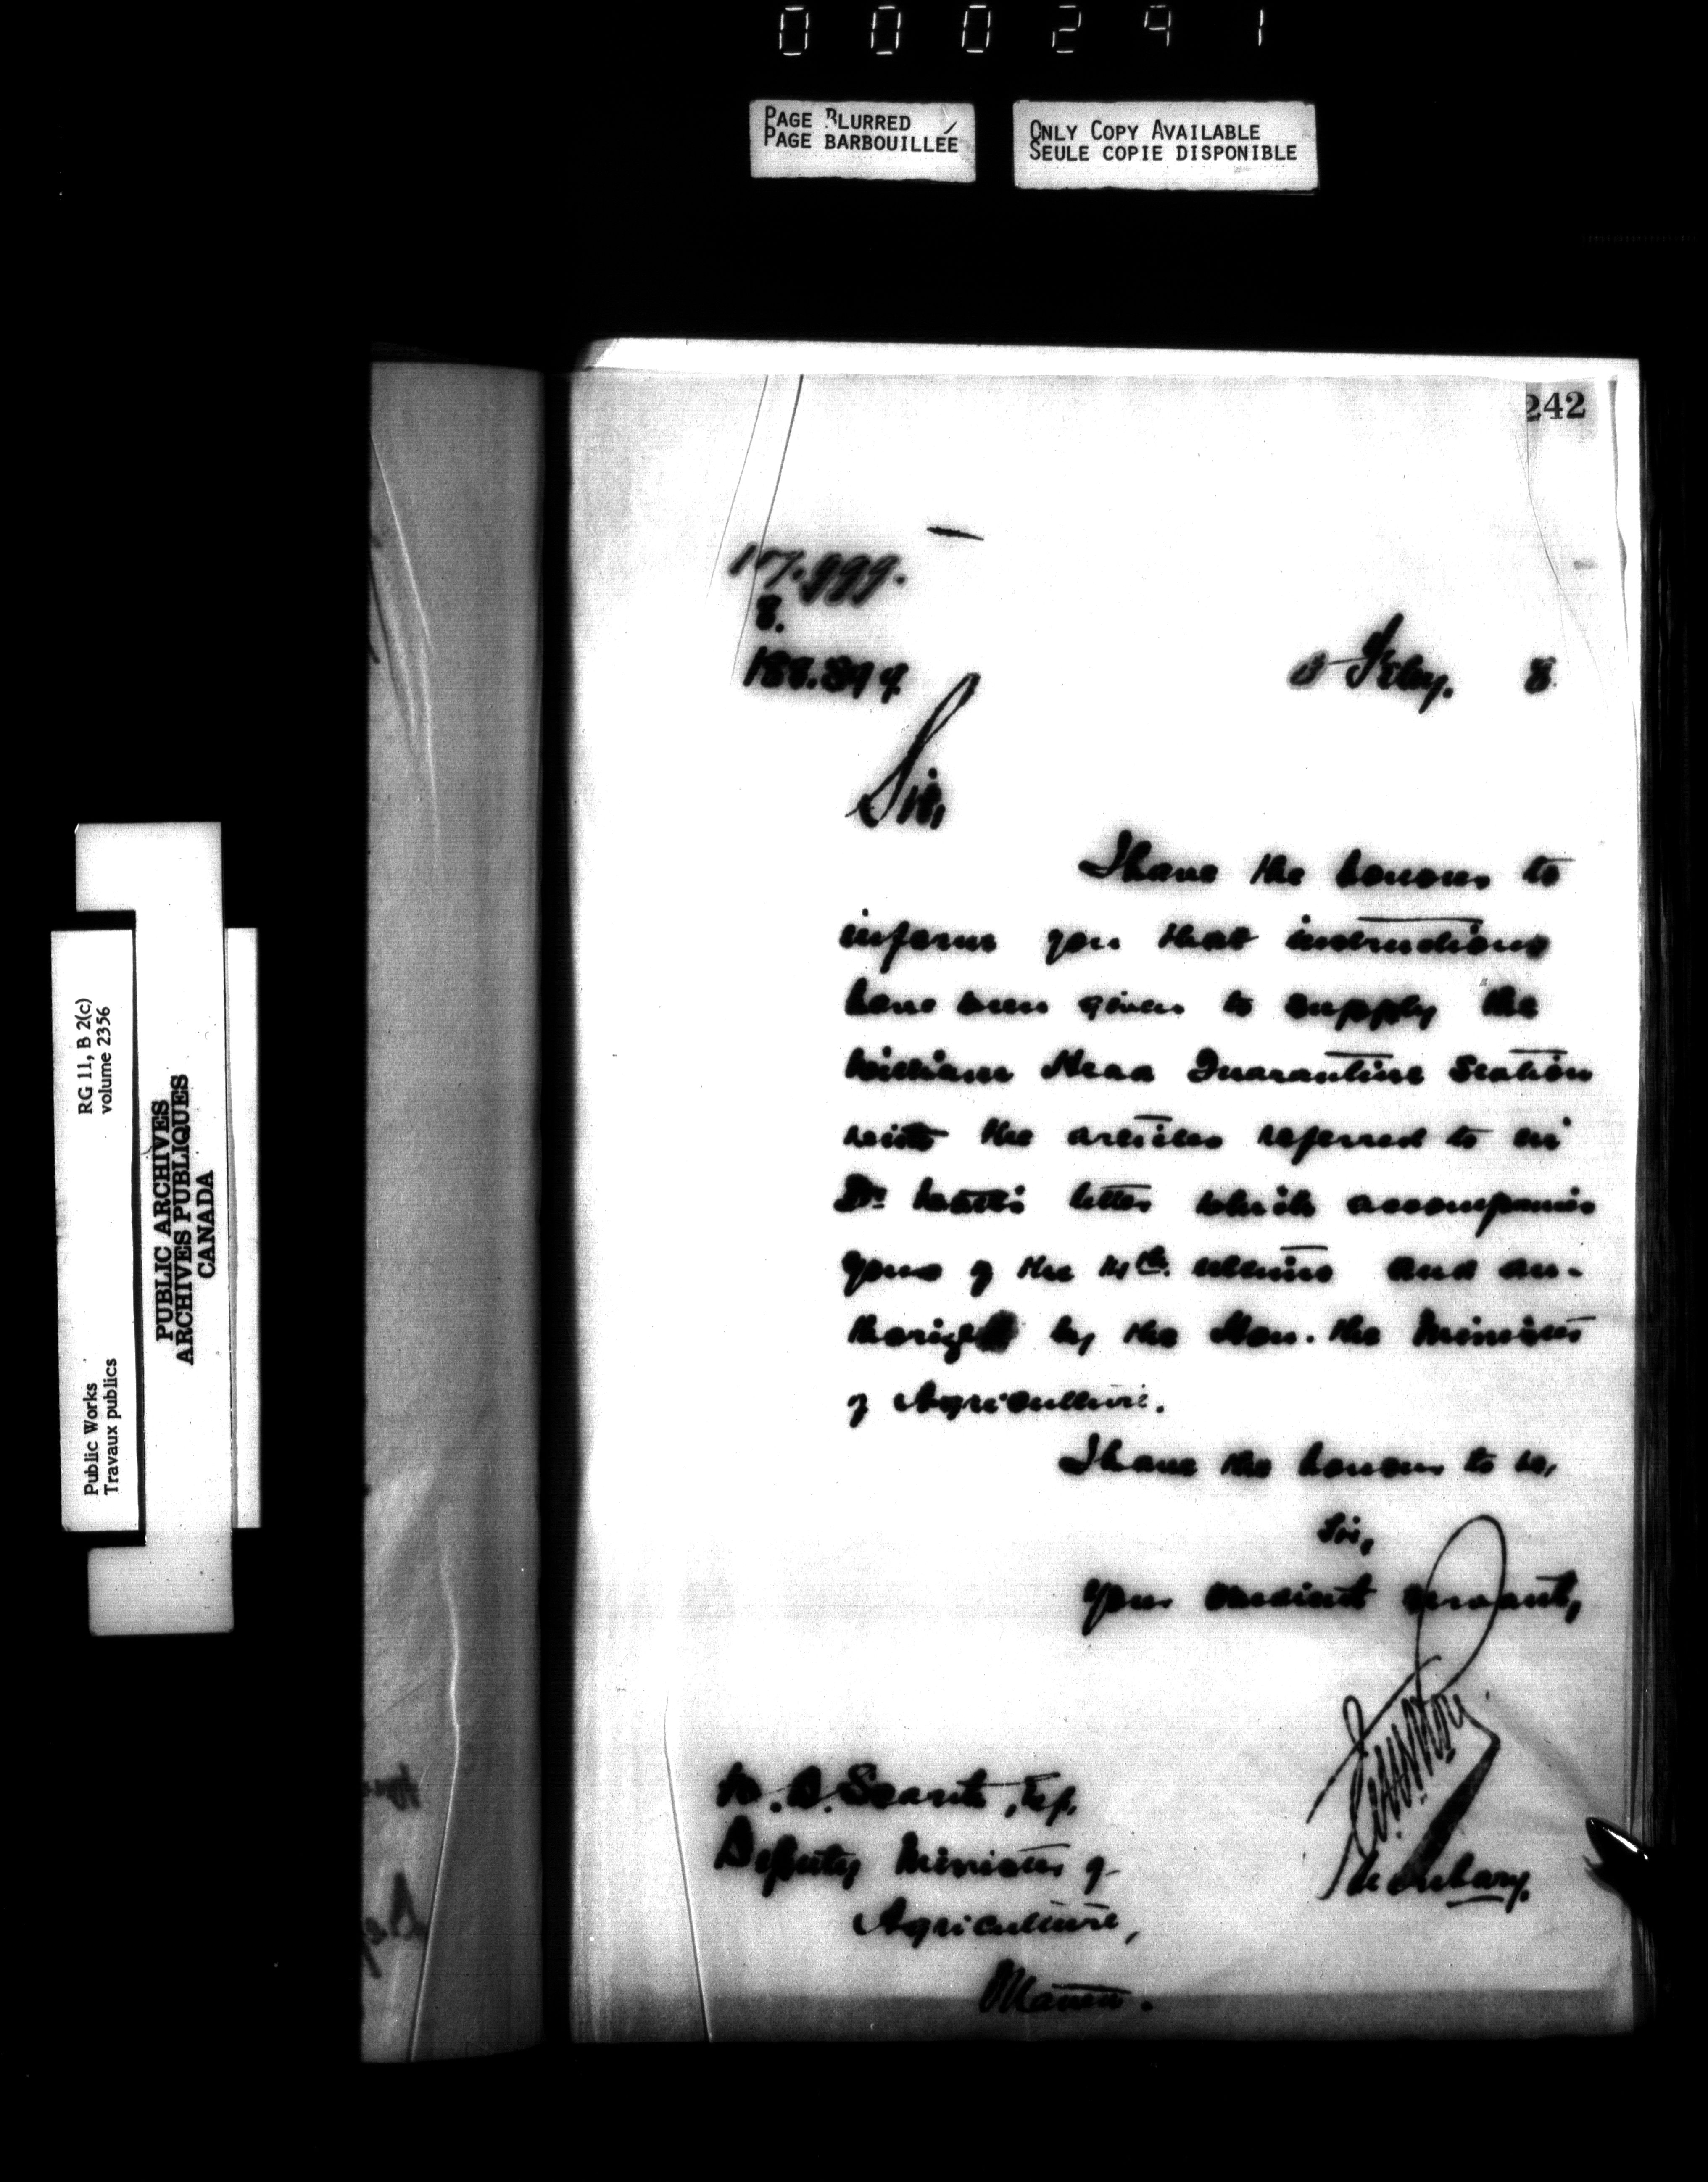 000291
PAGE BLURRED
PAGE BARBOUILLÉE
ONLY COPY AVAILABLE
SEULE COPIE DISPONIBLE
242
8.
Feby. 8
Sir,
I have the honour to
inform you that instructions
have been given to supply the
William Head Quarantine Station
with the articles referred to in
Dr. Watt's letter which accompanies
yours of the 14th. ultimo and au-
thorized by the Hon. the Minister
of Agriculture.
I have the honour to be,
Sir,
Your obedient servant,
Secretary.
W. B. Scarth, Esq,
Deputy Minister of
Agriculture,
Ottawa.
Public Works
Travaux publics
RG 11, B 2(c)
volume 2356
PUBLIC ARCHIVES
ARCHIVES PUBLIQUES
CANADA